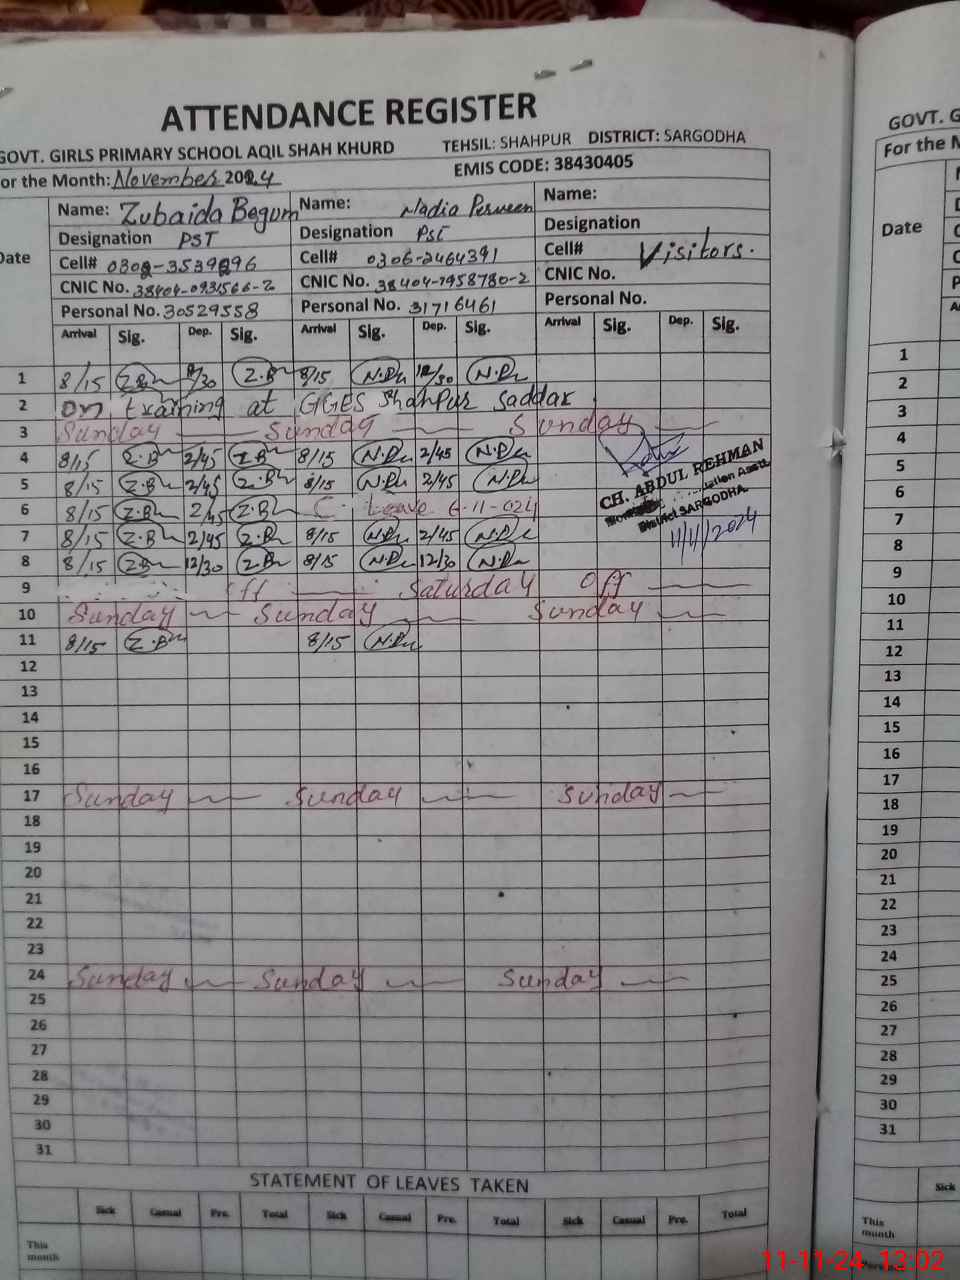 ATTENDANCE REGISTER
GOVT. GIRLS PRIMARY SCHOOL AQIL SHAH KHURD TEHSIL: SHAHPUR DISTRICT: SARGODHA
or the Month: November 2024 EMIS CODE: 38430405
Date
Name: Zubaida Begum Name: Nadia Perveen Name:
Designation PST Designation PST Designation
Cell# Cell# 0306-2464391 Cell# Visitors.
CNIC No. 38404-0931566-2 CNIC No. 38404-7958780-2 CNIC No.
Personal No. 30529558 Personal No. 31716461 Personal No.
Arrival Sig. Dep. Sig. Arrival Sig. Dep. Sig. Arrival Sig. Dep. Sig.
1 8/15 Z.B /30 Z.B 8/15 N.P 12/30 N.P
2 on training at GGES Shahpur Saddar
3 Sunday Sunday Sunday
4 8/15 Z.B 2/45 Z.B 8/15 N.P 2/45 N.P
5 8/15 Z.B 2/45 Z.B 8/15 N.P 2/45 N.P
6 8/15 Z.B 2/45 Z.B C. Leave 6-11-024
7 8/15 Z.B 2/45 Z.B 8/15 N.P 2/45 N.P
8 8/15 Z.B 12/30 Z.B 8/15 N.P 12/30 N.P
9 off Saturday off
10 Sunday Sunday Sunday
11 8/15 Z.B 8/15 N.P
12
13
14
15
16
17 Sunday Sunday Sunday
18
19
20
21
22
23
24 Sunday Sunday Sunday
25
26
27
28
29
30
31
CH. ABDUL REHMAN
District SARGODHA.
11/11/2024
STATEMENT OF LEAVES TAKEN
Sick Casual Pre. Total Sick Casual Pre. Total Sick Casual Pre. Total
This month
GOVT. G
For the M
Date
1
2
3
4
5
6
7
8
9
10
11
12
13
14
15
16
17
18
19
20
21
22
23
24
25
26
27
28
29
30
31
Sick
This month
11-11-24 13:02